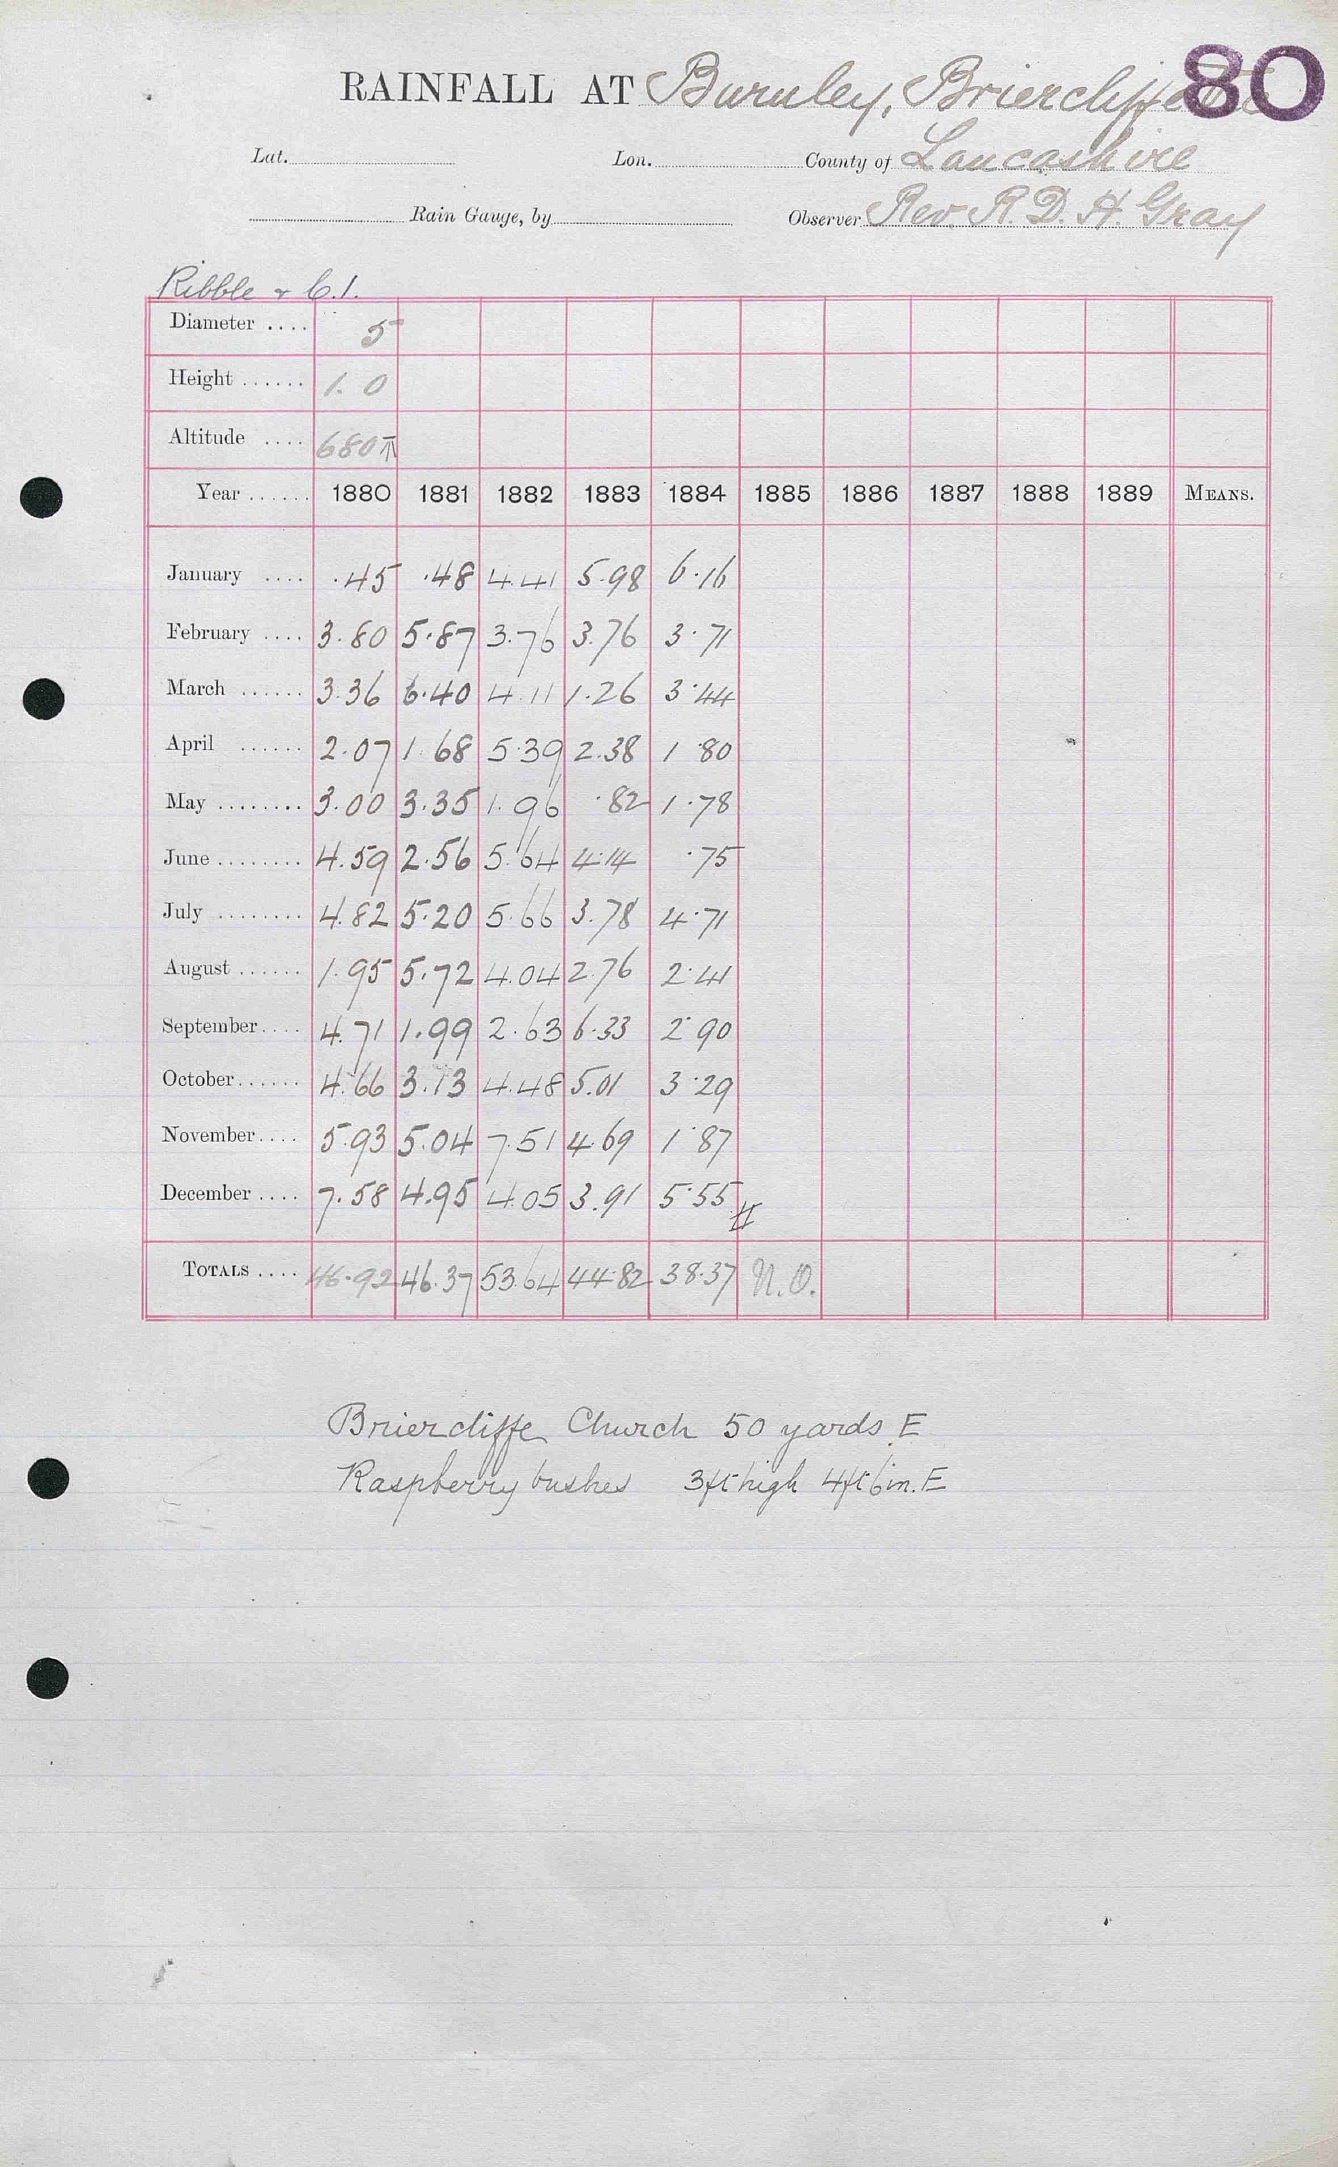 80
RAINFALL AT Burnley, Briercliffe
Lat. Lon. County of Lancashire
Rain Gauge, by Observer Rev. R. D. H. Gray
Ribble & C.1.
Diameter .... 5
Height ...... 1. 0
Altitude .... 680
Year ...... 1880 1881 1882 1883 1884 1885 1886 1887 1888 1889 MEANS.
January .... .45 .48 4.41 5.98 6.16
February .... 3.80 5.87 3.76 3.76 3.71
March ...... 3.36 6.40 4.11 1.26 3.44
April ...... 2.07 1.68 5.39 2.38 1.80
May ........ 3.00 3.35 1.96 .82 1.78
June ........ 4.59 2.56 5.64 4.14 .75
July ........ 4.82 5.20 5.66 3.78 4.71
August ...... 1.95 5.72 4.04 2.76 2.41
September.... 4.71 1.99 2.63 6.33 2.90
October...... 4.66 3.13 4.48 5.01 3.29
November.... 5.93 5.04 7.51 4.69 1.87
December .... 7.58 4.95 4.05 3.91 5.55
TOTALS .... 46.92 46.37 53.64 44.82 38.37 N.O.
Briercliffe Church 50 yards E
Raspberry bushes 3ft high 4ft 6in. E